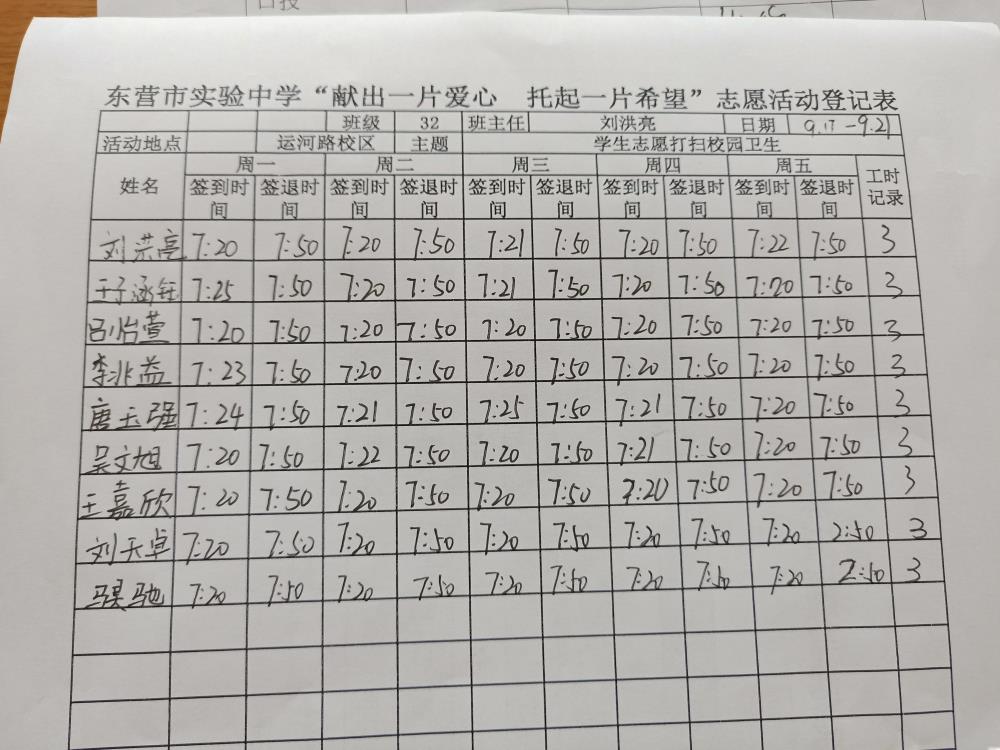 口投
东营市实验中学“献出一片爱心 托起一片希望”志愿活动登记表
班级 32 班主任 刘洪亮 日期 9.17-9.21
活动地点 运河路校区 主题 学生志愿打扫校园卫生
姓名 周一 周二 周三 周四 周五 工时记录
签到时间 签退时间 签到时间 签退时间 签到时间 签退时间 签到时间 签退时间 签到时间 签退时间
刘洪亮 7:20 7:50 7:20 7:50 7:21 7:50 7:20 7:50 7:22 7:50 3
王子涵钰 7:25 7:50 7:20 7:50 7:21 7:50 7:20 7:50 7:20 7:50 3
吕怡萱 7:20 7:50 7:20 7:50 7:20 7:50 7:20 7:50 7:20 7:50 3
李兆益 7:23 7:50 7:20 7:50 7:20 7:50 7:20 7:50 7:20 7:50 3
唐玉强 7:24 7:50 7:21 7:50 7:25 7:50 7:21 7:50 7:20 7:50 3
吴文旭 7:20 7:50 7:22 7:50 7:20 7:50 7:21 7:50 7:20 7:50 3
王嘉欣 7:20 7:50 7:20 7:50 7:20 7:50 7:20 7:50 7:20 7:50 3
刘天卓 7:20 7:50 7:20 7:50 7:20 7:50 7:20 7:50 7:20 2:50 3
驰 7:20 7:50 7:20 7:50 7:20 7:50 7:20 7:50 7:20 2:50 3